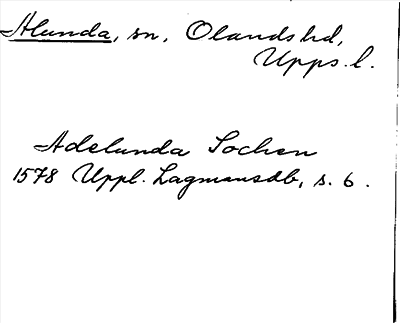 Alunda, sn, Olands hd,
Upps. l.
Adelunda Sochen
1578 Uppl. Lagmansdb, s. 6.